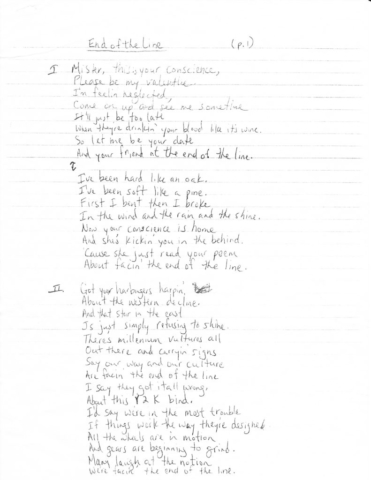 End of the Line (p.1)
I Mister, this is your conscience,
Please be my valentine.
I'm feelin neglected,
Come on up and see me sometime
It'll just be too late
When they're drinkin' your blood like it's wine.
So let me be your date
And your friend at the end of the line.
I've been hard like an oak.
I've been soft like a pine.
First I bent then I broke
In the wind and the rain and the shine.
Now your conscience is home
And she's kickin you in the behind.
'Cause she just read your poem
About facin' the end of the line.
II Got your harbingers harpin'
About the western decline.
And that star in the east
Is just simply refusing to shine.
There's millenium vultures all
Out there and carryin signs
Say our way and our culture
Are facin the end of the line
I say they got it all wrong.
About this Y2K bind.
I'd say we're in the most trouble
If things work the way they're designed
All the wheels are in motion
And gears are beginning to grind.
Many laugh at the notion
We're facin' the end of the line.